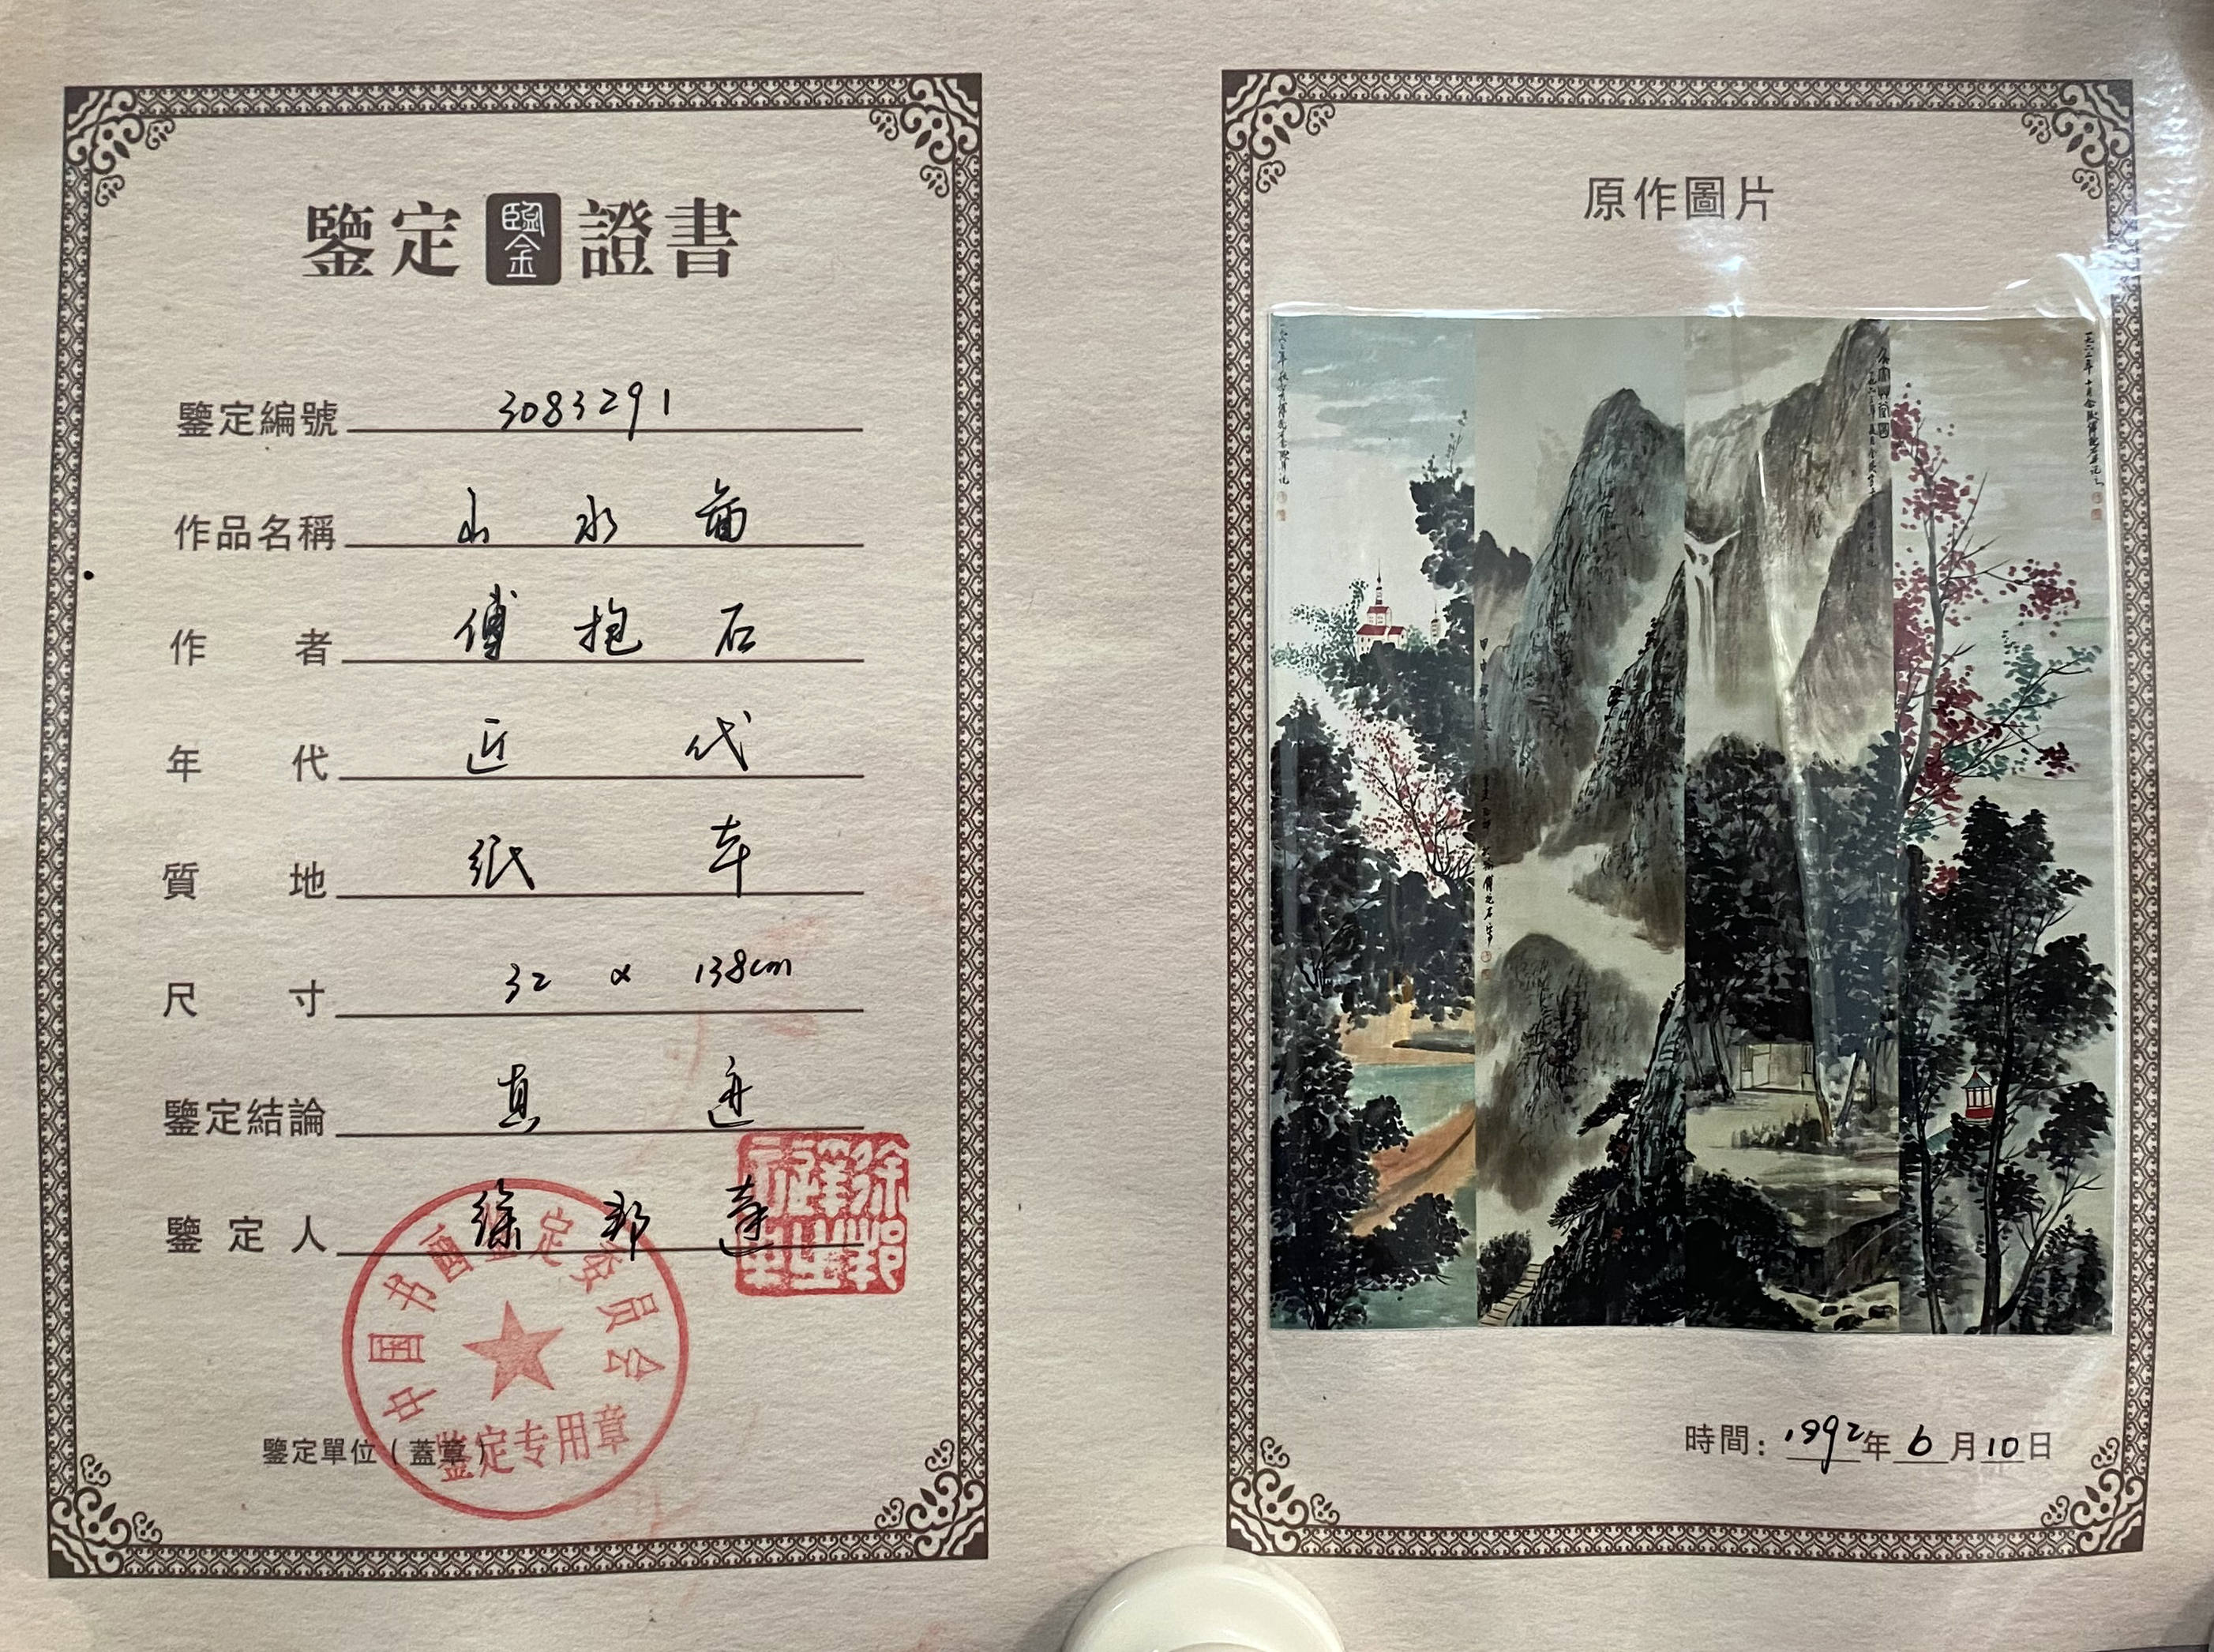 鑒定 鑒 證書
鑒定編號 3083291
作品名稱 山水圖
作者 傅抱石
年代 近代
質地 紙本
尺寸 32 x 138cm
鑒定結論 真迹
鑒定人 徐邦達
中国书画鉴定委员会
鉴定专用章
鑒定單位（蓋章）
原作圖片
時間：1992年6月10日